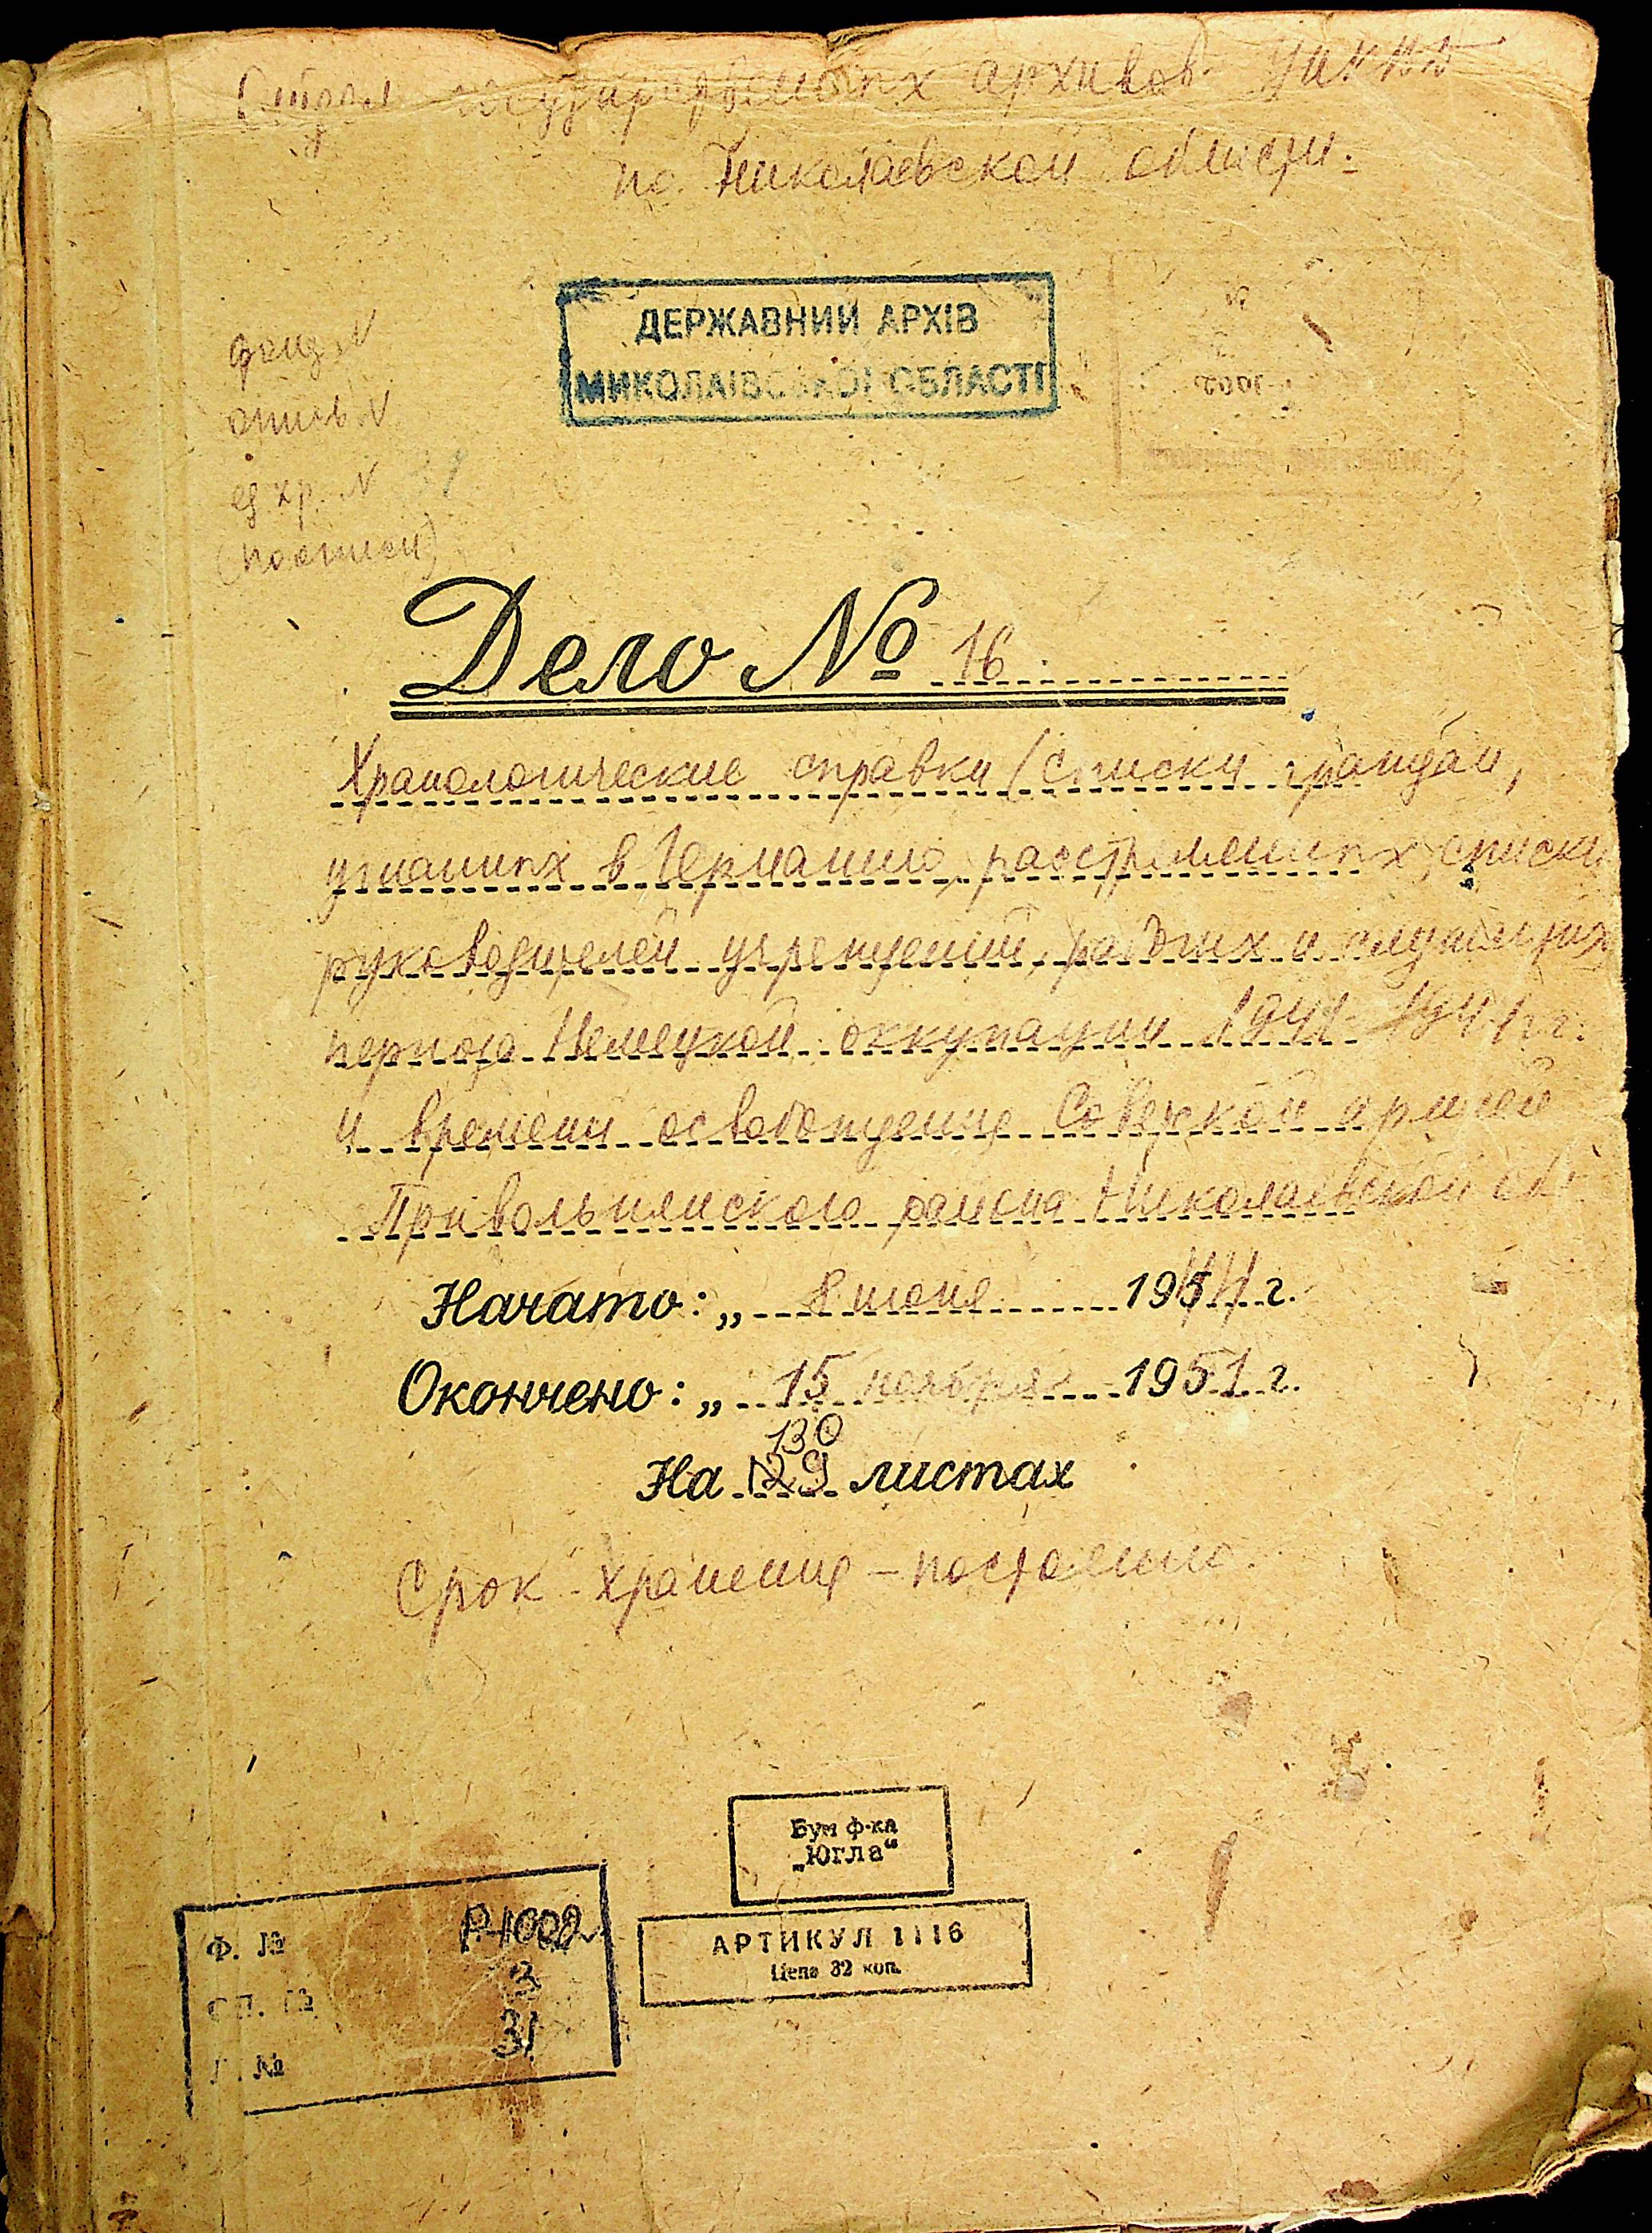 Отдел государственных архивов УМВД
по Николаевской области.
ДЕРЖАВНИЙ АРХІВ
МИКОЛАЇВСЬКОЇ ОБЛАСТІ
фонд N
опись N
ед. хр. N 31
(по описи)
Дело № 16
Хронологические справки (списки граждан,
угнанных в Германию, расстрелянных, списки
руководителей учреждений, рабочих и служащих
периода Немецкой оккупации 1941-1944 гг.
и времени освобождения Советской армией
Привольнянского района Николаевской обл
Начато: „ 8 июня 1944 г.
Окончено: „ 15 ноября 1951 г.
130
На 129 листах
Срок хранения – постоянно.
Бум ф-ка
„Югла“
АРТИКУЛ 1116
Цена 32 коп.
Ф. № Р-1002
ОП. № 2
№ 31